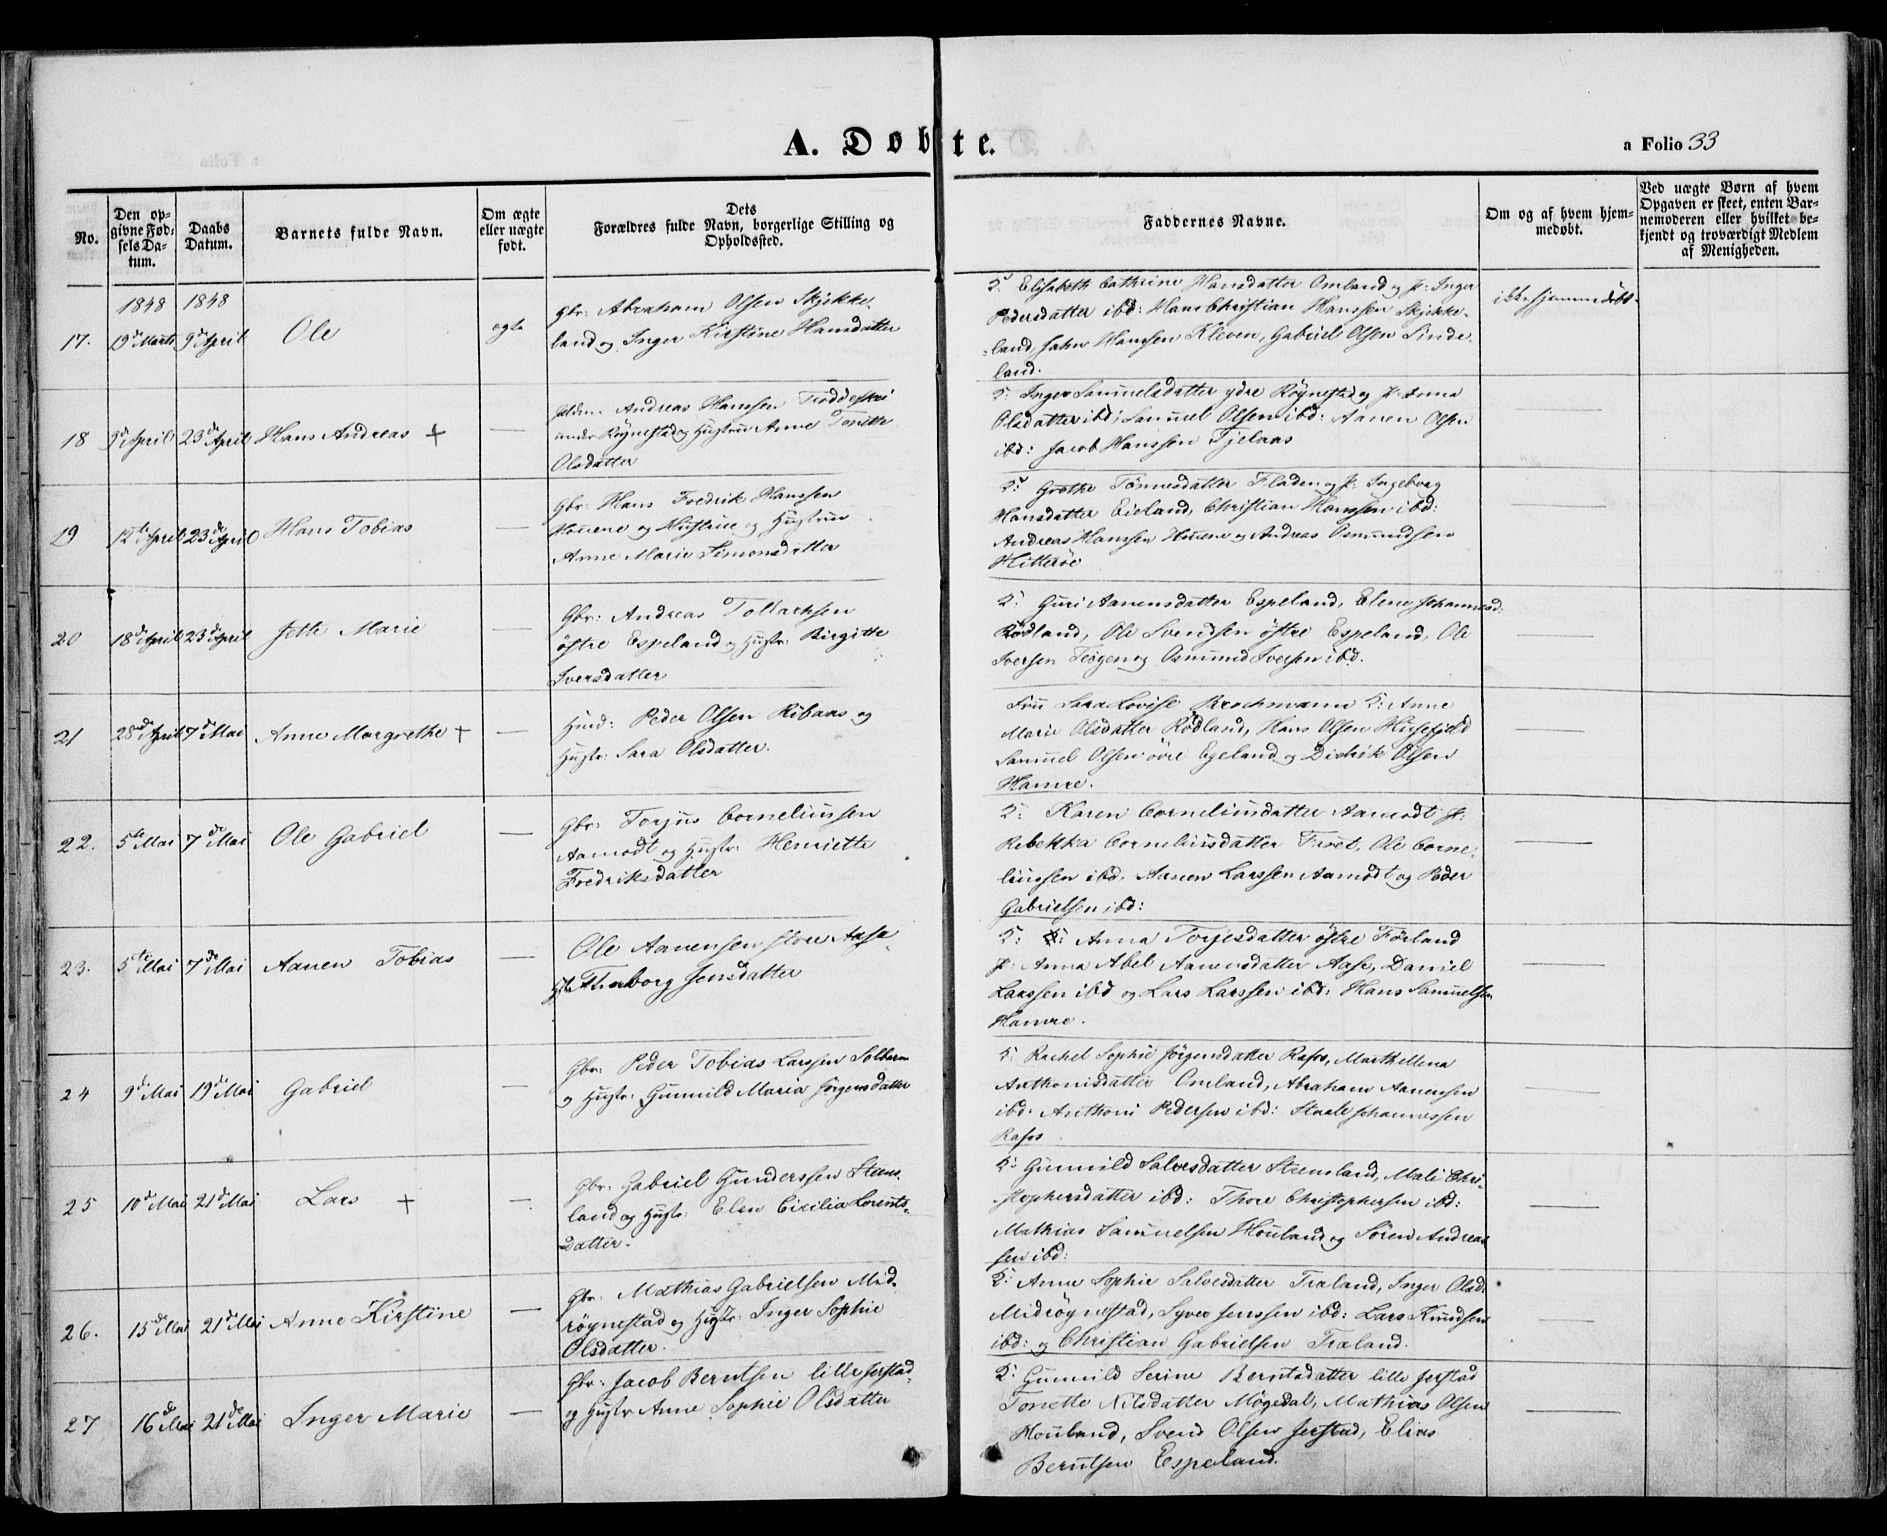 A. Døbte.
a Folio 33
No.
Den op-
givne Fød-
sels Da-
tum.
Daabs
Datum.
Barnets fulde Navn.
Om ægte
eller uægte
født.
Dets
Forældres fulde Navn, borgerlige Stilling og
Opholdssted.
Faddernes Navne.
Om og af hvem hjem-
medøbt.
Ved uægte Børn af hvem
Opgaven er skeet, enten Bar-
nemoderen eller hvilket be-
kjendt og troværdigt Medlem
af Menigheden.
1848 1848
17. 19de Marts 9de April Ole ægte
Gbr: Abraham Olsen Skjekke-
land og Inger Kirstine Hansdatter
Elisabeth Cathrine Hansdatter Omland og P: Inger
Pedersdatter ibd: Hans Christian Hanssen Skjekke-
land, John Hanssen Kleven, Gabriel Olsen Sinde-
land.
ikke hjemmedøbt.
18 9de April 23de April Hans Andreas + —
Andreas Hanssen
under Røynestad og Hustru Anne Tonette
Olsdatter
Inger Samuelsdatter ydre Røynestad og P: Anna
Olsdatter ibd: Samuel Olsen ibd: Aanen Olsen
ibd: Jacob Hanssen Tjelaas
—
19 12te April 23de April Hans Tobias —
Gbr: Hans Fredrik Hanssen
Houene og Hustrue
Anne Marie Simonsdatter
Grethe Tönnesdatter Fladen og P: Ingeborg
Hansdatter Eieland, Christian Hanssen ibd:
Andreas Hanssen Houene og Andreas Osmundsen
Hitterøe
—
20 18de April 23de April Jette Marie —
Gbr: Andreas Tollacksen
östre Espeland og Hustr: Birgitte
Iversdatter
Guri Aanensdatter Espeland, Elene Johannesd:
Rödland, Ole Svendsen östre Espeland, Ole
Iversen og Osmund Iversen ibd.
—
21 28de April 7de Mai Anne Margrethe + —
Huusd: Peder Olsen Ribaas og
Hustr: Sara Olsdatter.
Fru Sara Lovise Brochmann K: Anne
Marie Olsdatter Rödland, Hans Olsen Husefjeld
Samuel Olsen övre Egeland og Didrik Olsen
Hamre.
—
22. 5te Mai 7de Mai Ole Gabriel —
Gbr: Torjus Corneliussen
Aamodt og Hustr: Henriette
Fredriksdatter
Karen Corneliusdatter Aamodt P:
Rebekka Corneliusdatter Tvet, Ole Corne-
liussen ibd. Aanen Larssen Aamodt og Peder
Gabrielsen ibd:
—
23. 5te Mai 7de Mai Aanen Tobias —
Ole Aanensen store Aase
Hstr: Thorborg Jensdatter
Anna Torjesdatter östre Förland
P: Anna Abel Aanensdatter Aase, Daniel
Larssen ibd og Lars Larssen ibd: Hans Samuelsen
Hamre.
—
24 9de Mai 19de Mai Gabriel —
Gbr: Peder Tobias Larssen Solberg
og Hustr: Gunnild Maria Jörgensdatter
Rachel Sophie Jörgensdatter Rafos, Marthe Elena
Anthonisdatter Omland, Abraham Aanensen
ibd: Anthoni Pedersen ibd: Staale Johannessen
Rafos
—
25 10de Mai 21de Mai Lars + —
Gbr: Gabriel Gunderssen Stems-
land og Hustr: Elen Cicilia Lorents-
datter.
Gunnild Salvesdatter Stemsland, Mali Chri-
stophersdatter ibd: Thore Christophersen ibd:
Mathias Samuelsen Houland og Sören Andreas
sen ibd:
—
26. 15de Mai 21de Mai Anne Kirstine —
Gbr: Mathias Gabrielsen Mid-
röynestad og Hustr: Inger Sophie
Olsdatter.
Anne Sophie Salvesdatter Træland, Inger Olsd:
Midröynestad, Syver Jenssen ibd: Lars Knudsen
ibd: og Christian Gabrielsen Træland.
—
27 16de Mai 21de Mai Inger Marie —
Gbr: Jacob Berntsen lille Jerstad
og Hustr Anne Sophie Olsdatter
Gunnild Serine Berntsdatter lille Jerstad
Tonette Nilsdatter Mögedal, Mathias Olsen
Houland, Svend Olsen Jerstad, Elias
Berntsen Espeland.
—